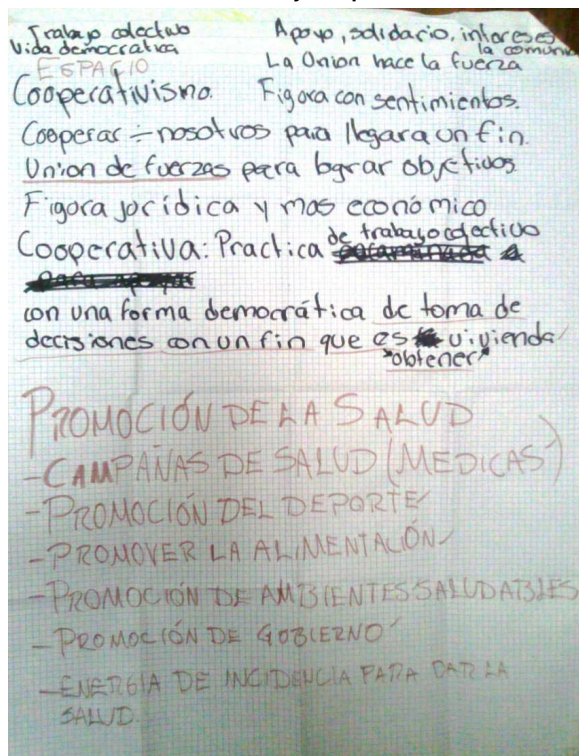 Trabajo colectivo
Vida democratica
Apoyo, solidario, intereses
la comuni
ESPACIO
La Union hace la fuerza
Cooperativismo. Figura con sentimientos.
Cooperar ÷ nosotros para llegar a un fin.
Union de fuerzas para lograr objetivos.
Figura jurídica y mas económico
Cooperativa: Practica de trabajo colectivo
con una forma democrática de toma de
decisiones con un fin que es vivienda
"obtener"
PROMOCIÓN DE LA SALUD
-CAMPAÑAS DE SALUD (MEDICAS)
-PROMOCIÓN DEL DEPORTE
-PROMOVER LA ALIMENTACIÓN
-PROMOCIÓN DE AMBIENTES SALUDABLES
-PROMOCIÓN DE GOBIERNO
-ENERGIA DE INCIDENCIA PARA DAR LA
SALUD.